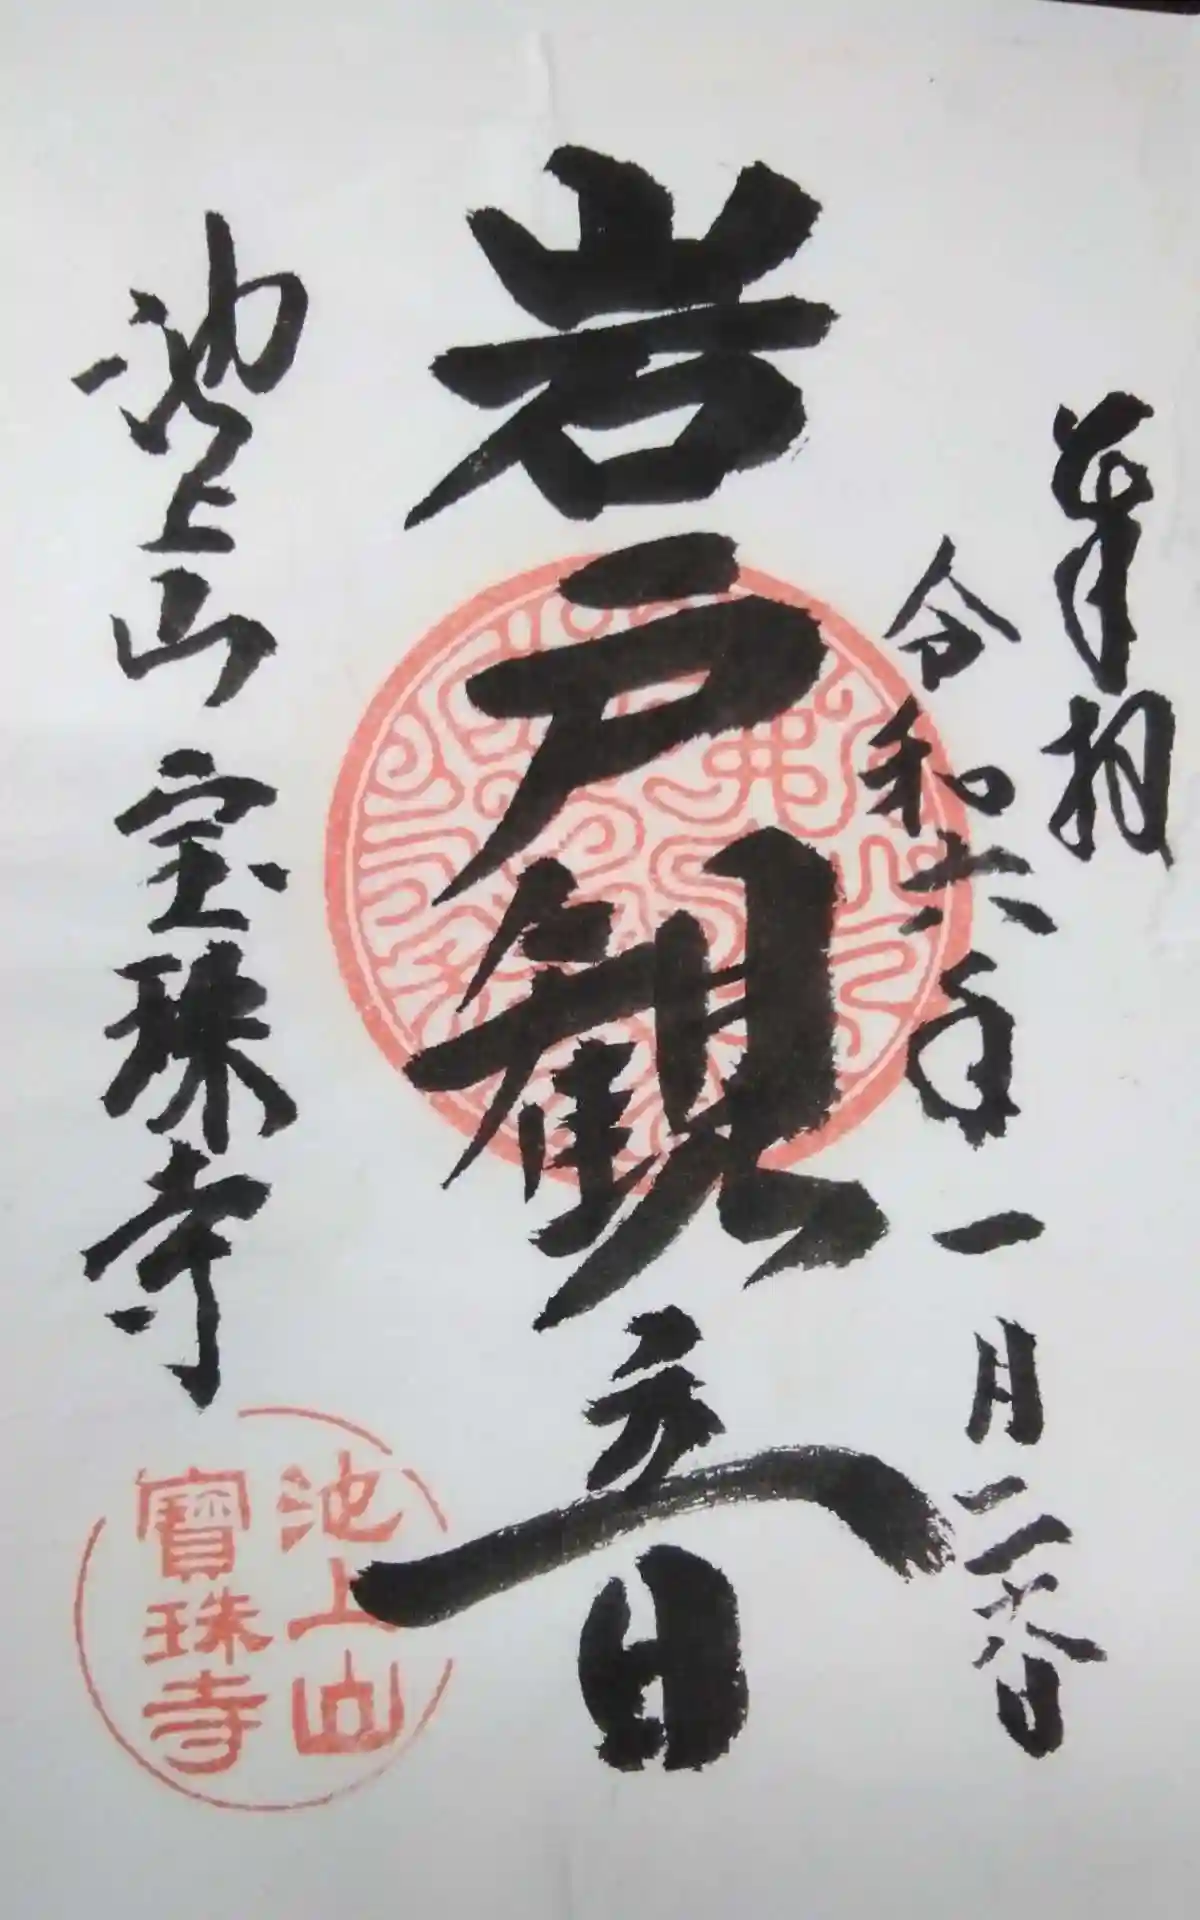 奉拝
令和六年一月二日
岩戸観音
池上山宝珠寺
池上山
寶珠寺